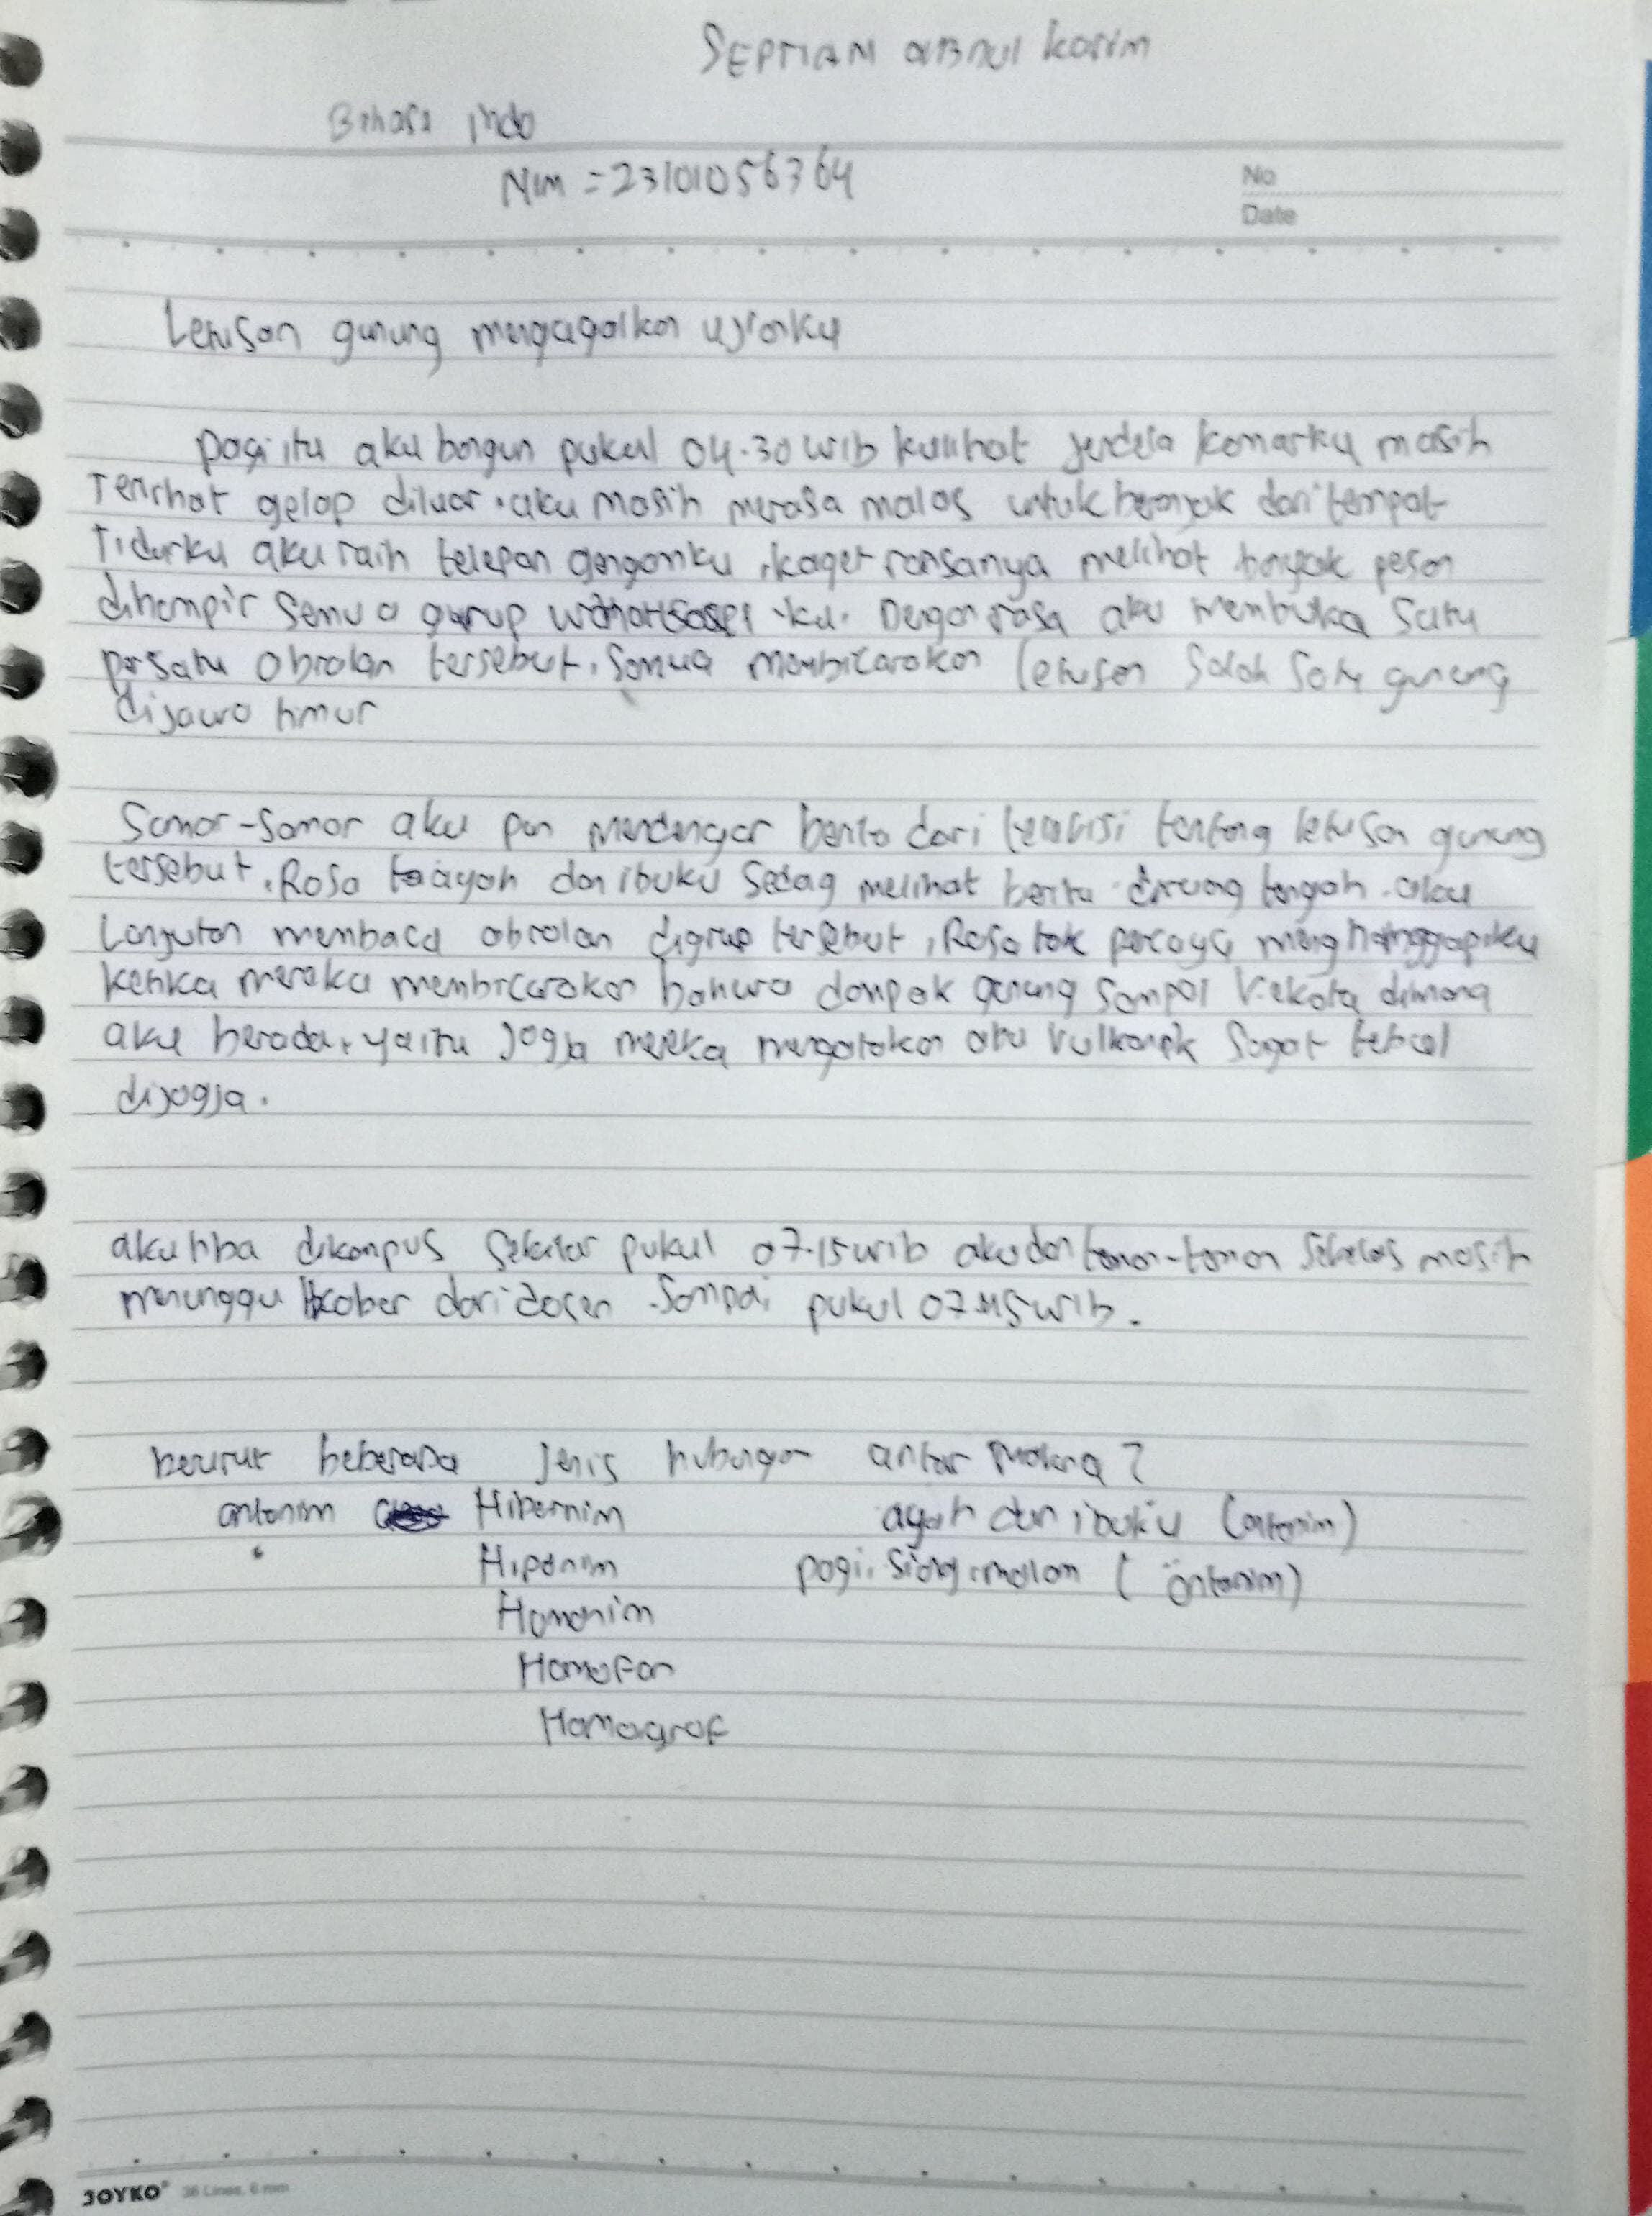 SEPTIAN abdul karim
Bahasa indo
Nim = 23101056764
No
Date
Letusan gunung mengagalkan ujianku
pagi itu aku bangun pukul 04.30 wib kulihat jendela kamarku masih
Terlihat gelap diluar. aku masih merasa malas untuk beranjak dari tempat
Tidurku aku raih telepan gengamku, kaget ransanya melihat banyak pesan
dihampir semua gurup ku. Dengan rasa aku membuka satu
persatu obrolan tersebut, semua membicarakan letusan salah satu gunung
dijawa timur
Samar-samar aku pun mendengar berita dari televisi tentang letusan gunung
tersebut, Rasa ayah dan ibuku sedag melihat berita diruang tengah. aku
Lanjutan membaca obrolan digrup tersebut, Rasa tak percaya
ketika mereka membicarakan bahwa dampak gunung sampai kekota dimana
aku berada, yaitu Jogja mereka mengatakan abu vulkanik sagat tebal
dijogja.
aku tiba dikampus sekitar pukul 07.15 wib aku dan teman-teman sekelas masih
menunggu kabar dari dosen. Sampai pukul 07.45 wib.
berurut beberapa jenis hubungan antar makna?
antonim Hipernim ayah dan ibuku (antonim)
Hiponim pagi, siang, malam (antonim)
Homonim
Homofon
Homograf
JOYKO 36 Lines, 6 mm